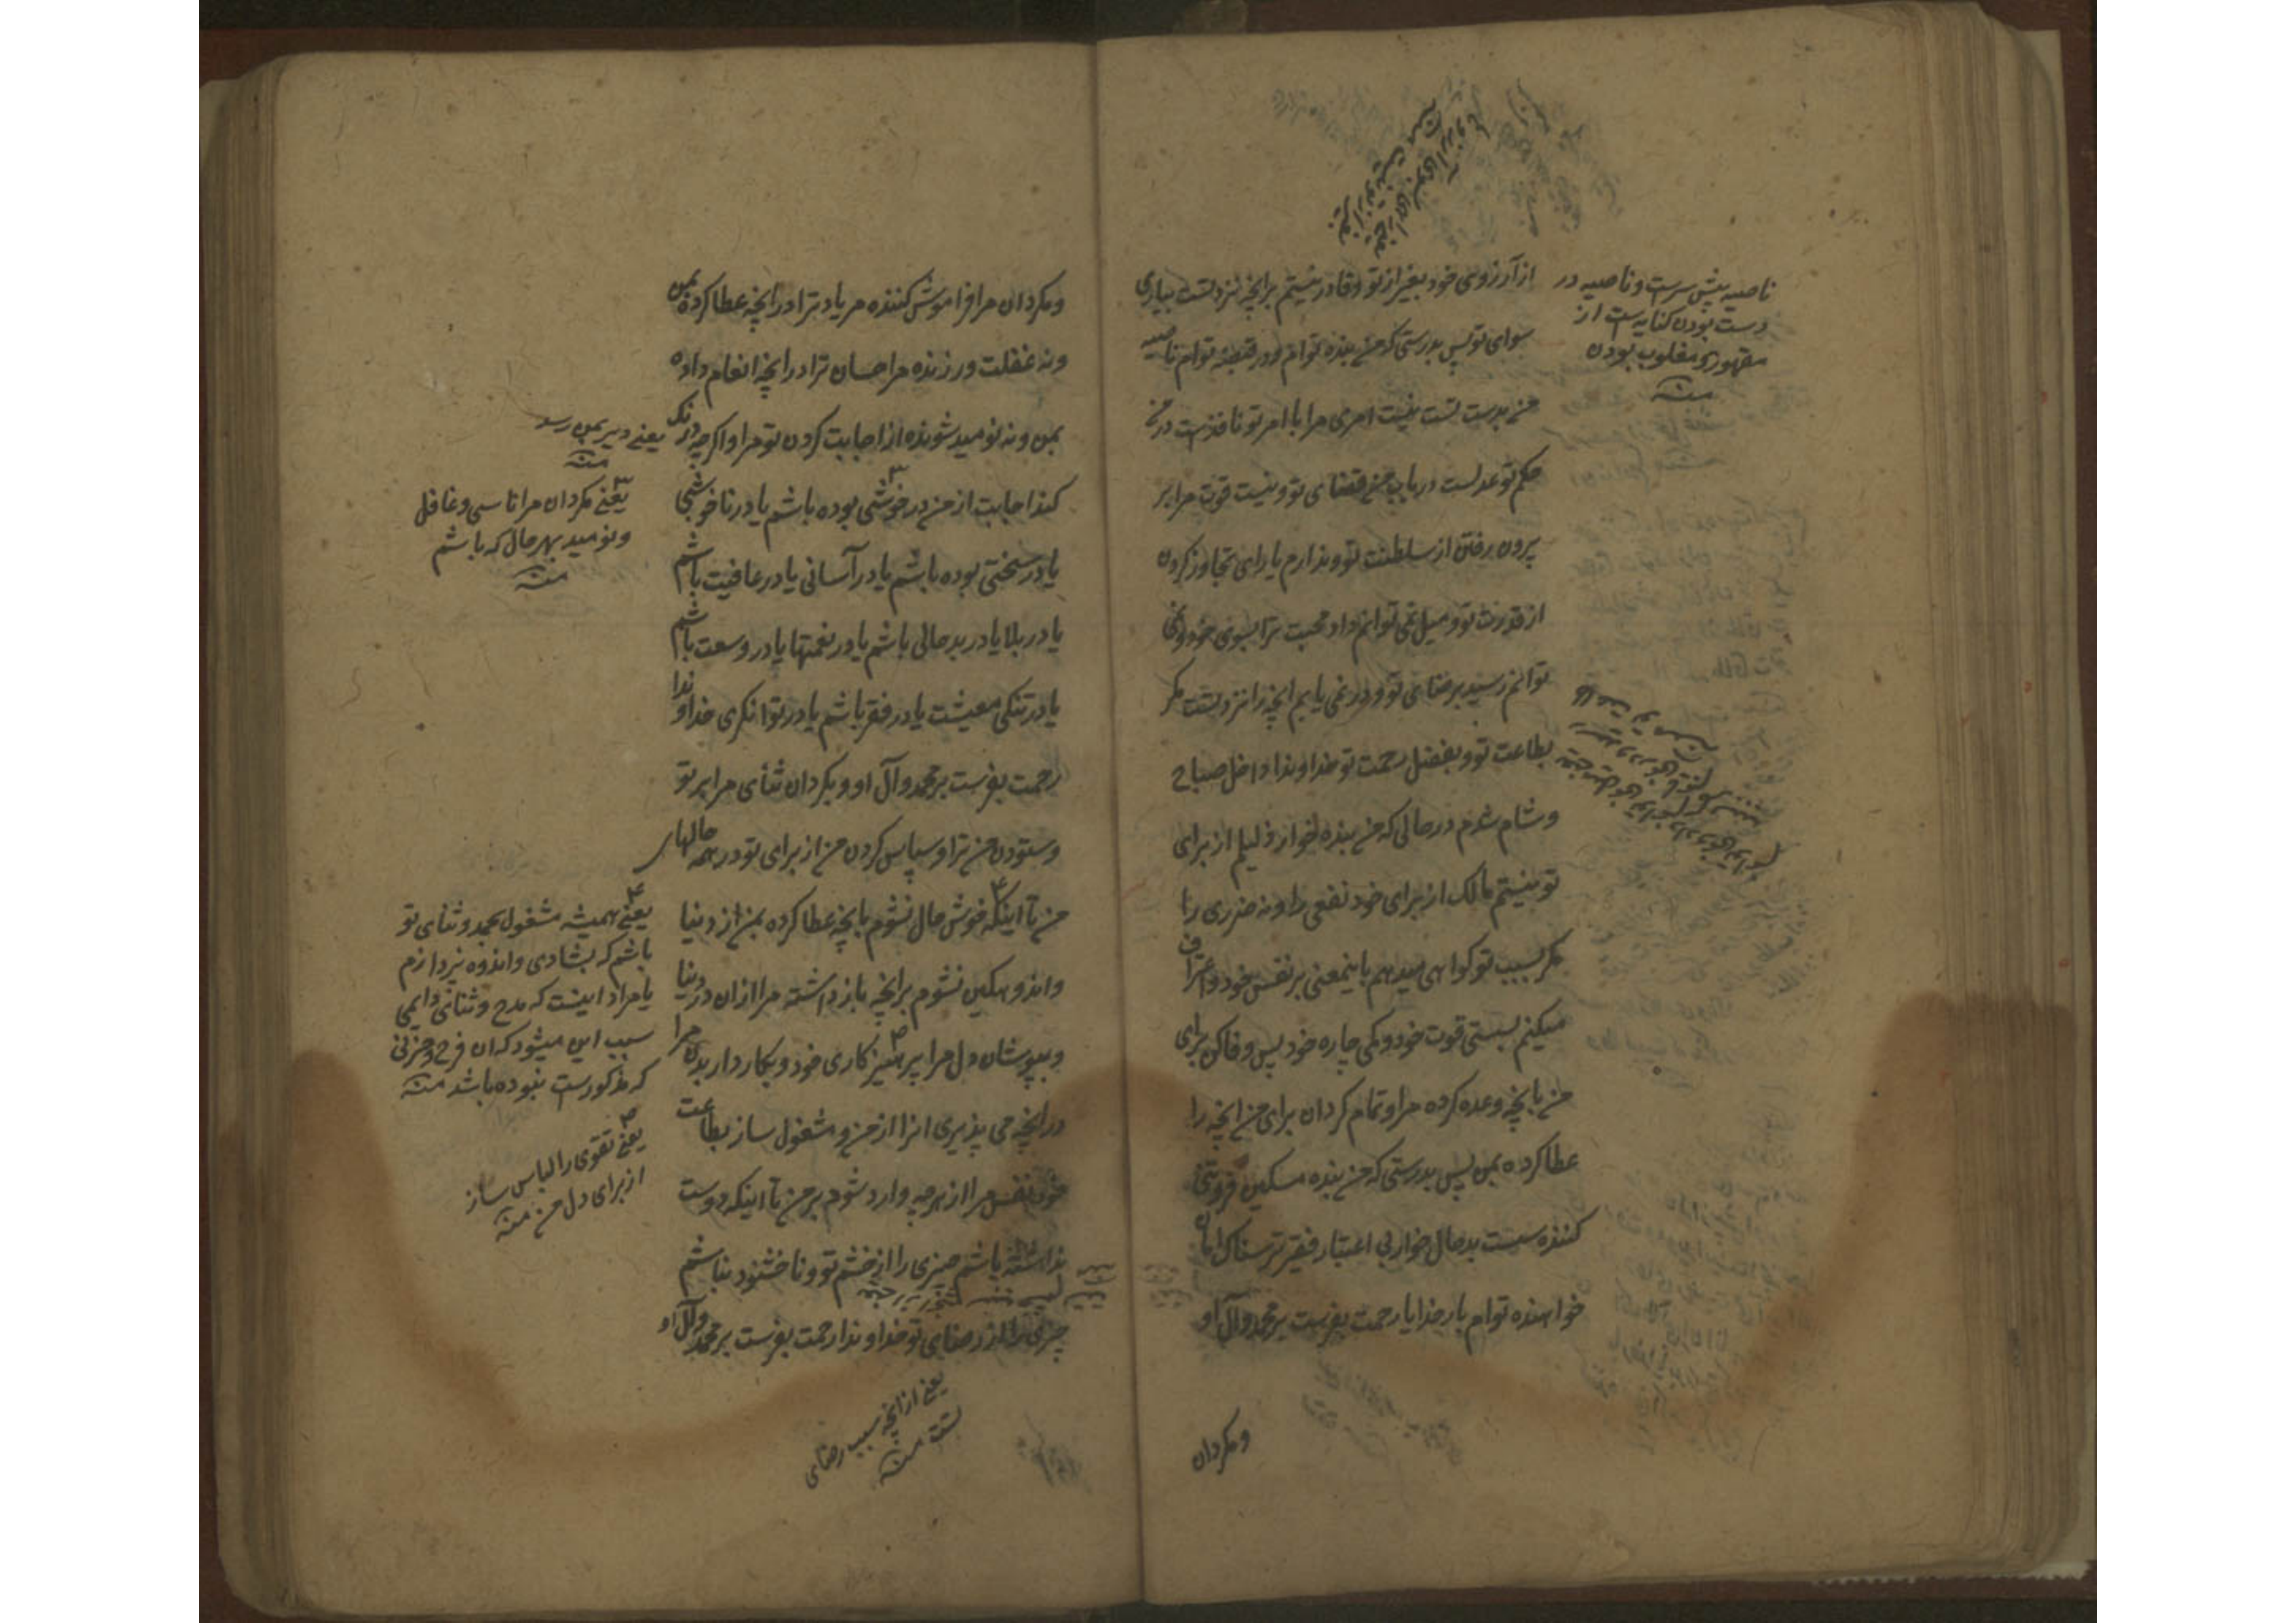 از آرزوی خود بغیر از تو و قادر نیستم برانچه نزد تست بیاری
سوای تو پس بدرستی که من بنده توام و در قبضه توام ناصیه
من بدست تست نیست امری مرا با امر تو نافذست در من
حکم تو عدلست در باب من قضای تو و نیست قوت مرا بر
بیرون رفتن از سلطنت تو و ندارم یارای تجاوز کردن
از قدرت تو و میل نمی توانم داد محبت ترا بسوی خود و نمی
توانم رسید برضای تو و در نمی یابم انچه را نزد تست مگر
بطاعت تو و بفضل رحمت تو خداوندا داخل صباح
و شام شدم در حالی که من بنده خوار ذلیلم از برای
تو نیستم مالک از برای خود نفعی را و نه ضرری را
مگر بسبب تو گواهی میدهم باینمعنی بر نفس خود و اعتراف
میکنم بسستی قوت خود و کمی چاره خود پس وفا کن برای
من بانچه وعده کرده مرا و تمام گردان برای من انچه را
عطا کرده بمن پس بدرستی که من بنده مسکین فروتنی
کننده سست بدحال خوار بی اعتبار فقیر ترسناک امان
خواهنده توام بار خدایا رحمت بفرست بر محمد و آل او
ومگردان
ناصیه پیش سرست و ناصیه در
دست بودن کنایه است از
مقهور و مغلوب بودن
منه
ومگردان مرا فراموش کننده مر یاد ترا در انچه عطا کرده بمن
ونه غفلت ورزنده مر احسان ترا در انچه انعام داده
بمن و نه نومید شونده از اجابت کردن تو مرا و اگرچه درنگ
کند اجابت از من در خوشی بوده باشم یا در ناخوشی
یا در سختی بوده باشم یا در آسانی یا در عافیت باشم
یا در بلا یا در بدحالی باشم یا در نعمتها یا در وسعت باشم
یا در تنکی معیشت یا در فقر باشم یا در توانگری خداوندا
رحمت بفرست بر محمد و آل او و بگردان ثنای مرا بر تو
وستودن من ترا و سپاس کردن من از برای تو در همه حالهای
من تا اینکه خوش حال نشوم بانچه عطا کرده بمن از دنیا
واندوهگین نشوم برانچه باز داشته مرا ازان در دنیا
وبپوشان دل مرا پرهیزکاری خود و بکار دار بدن مرا
در انچه می پذیری انرا از من و مشغول ساز بطاعت
خود نفس مرا از هرچه وارد شود بر من تا اینکه دوست
نداشته باشم چیزی را از خشم تو و ناخشنود نباشم
چیزی را از رضای تو خداوندا رحمت بفرست بر محمد و آل او
یعنی دیر بمن رسد
منه
یعنی مگردان مرا ناسی و غافل
ونومید بهر حال که باشم
منه
یعنی همیشه مشغول بحمد و ثنای تو
باشم که بشادی و اندوه نپردازم
یا مراد اینست که مدح و ثنای دایمی
سبب این میشود که ان فرح و حزنی
که مذکورست نبوده باشد منه
یعنی تقوی را لباس ساز
از برای دل من منه
یعنی از انچه سبب رضای
تست منه